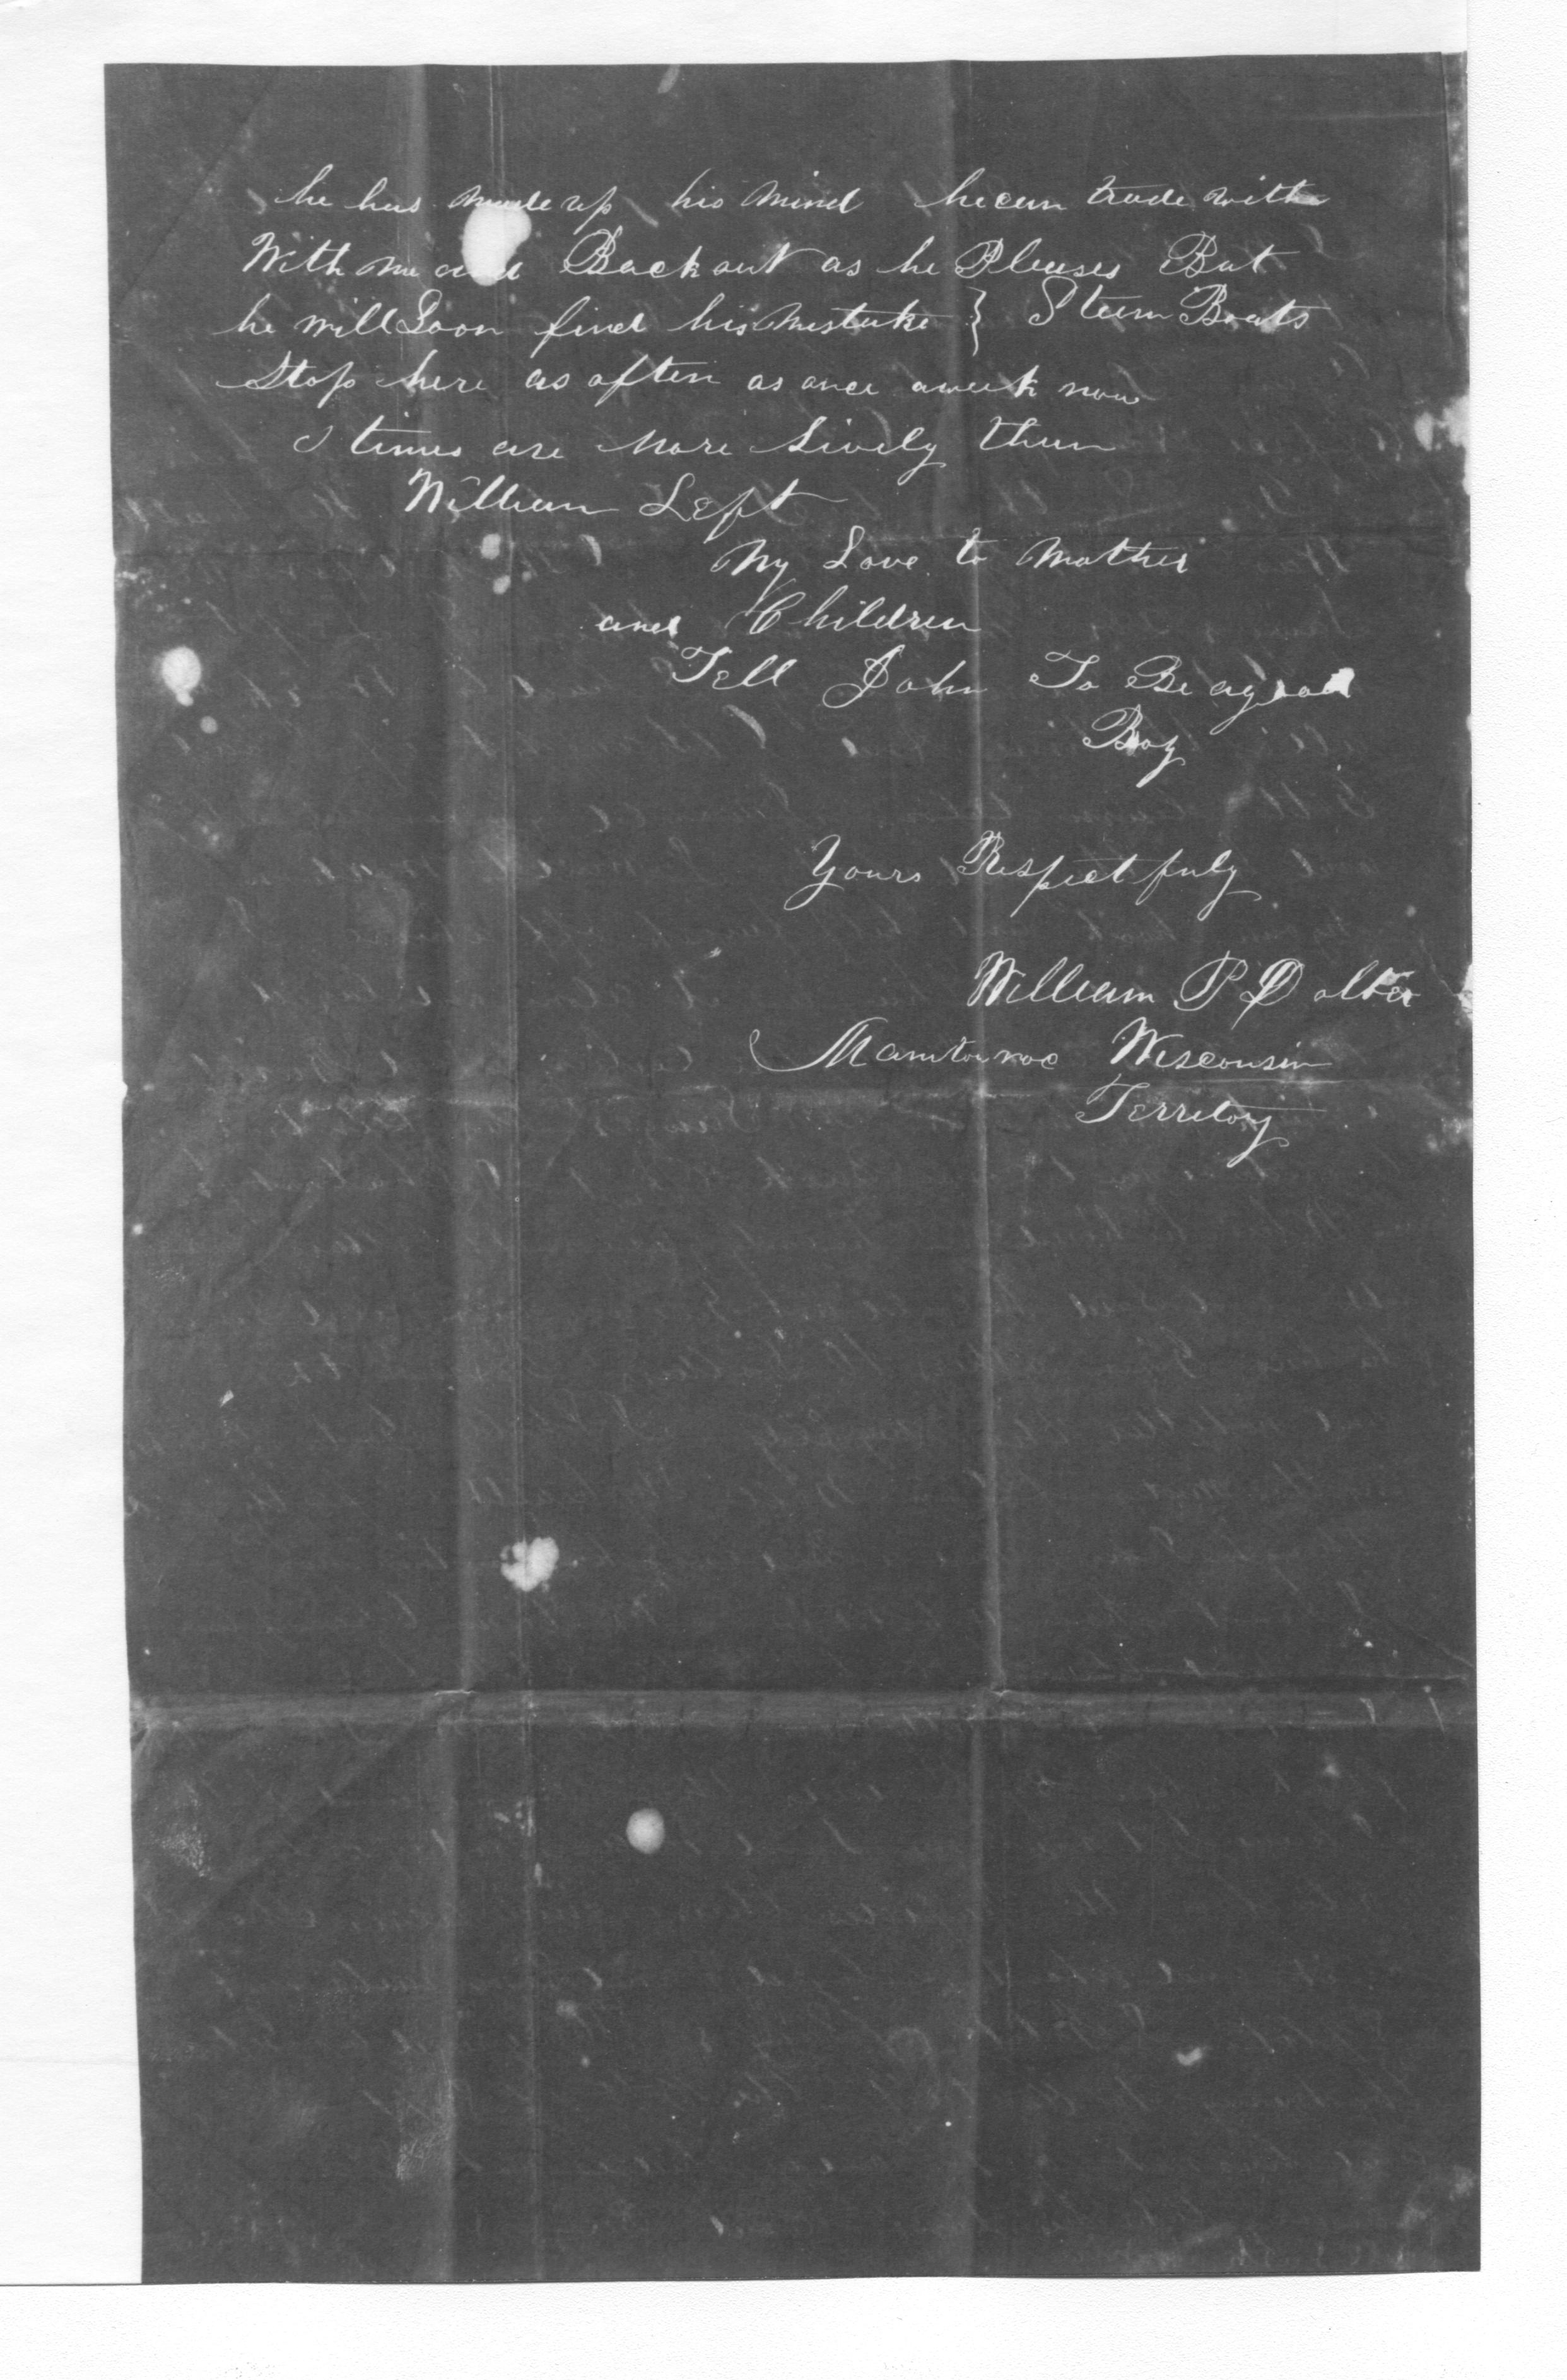 he has made up his mind he can trade with
With me and Back out as he Pleases But
he will Soon find his Mistake } Steem Boats
Stop here as often as once a week now
times are More Lively then
William Left
My Love to Mother
and Children
Tell John To Be a good
Boy
Yours Respectfuly
William P
Manitowoc Wisconsin
Territory